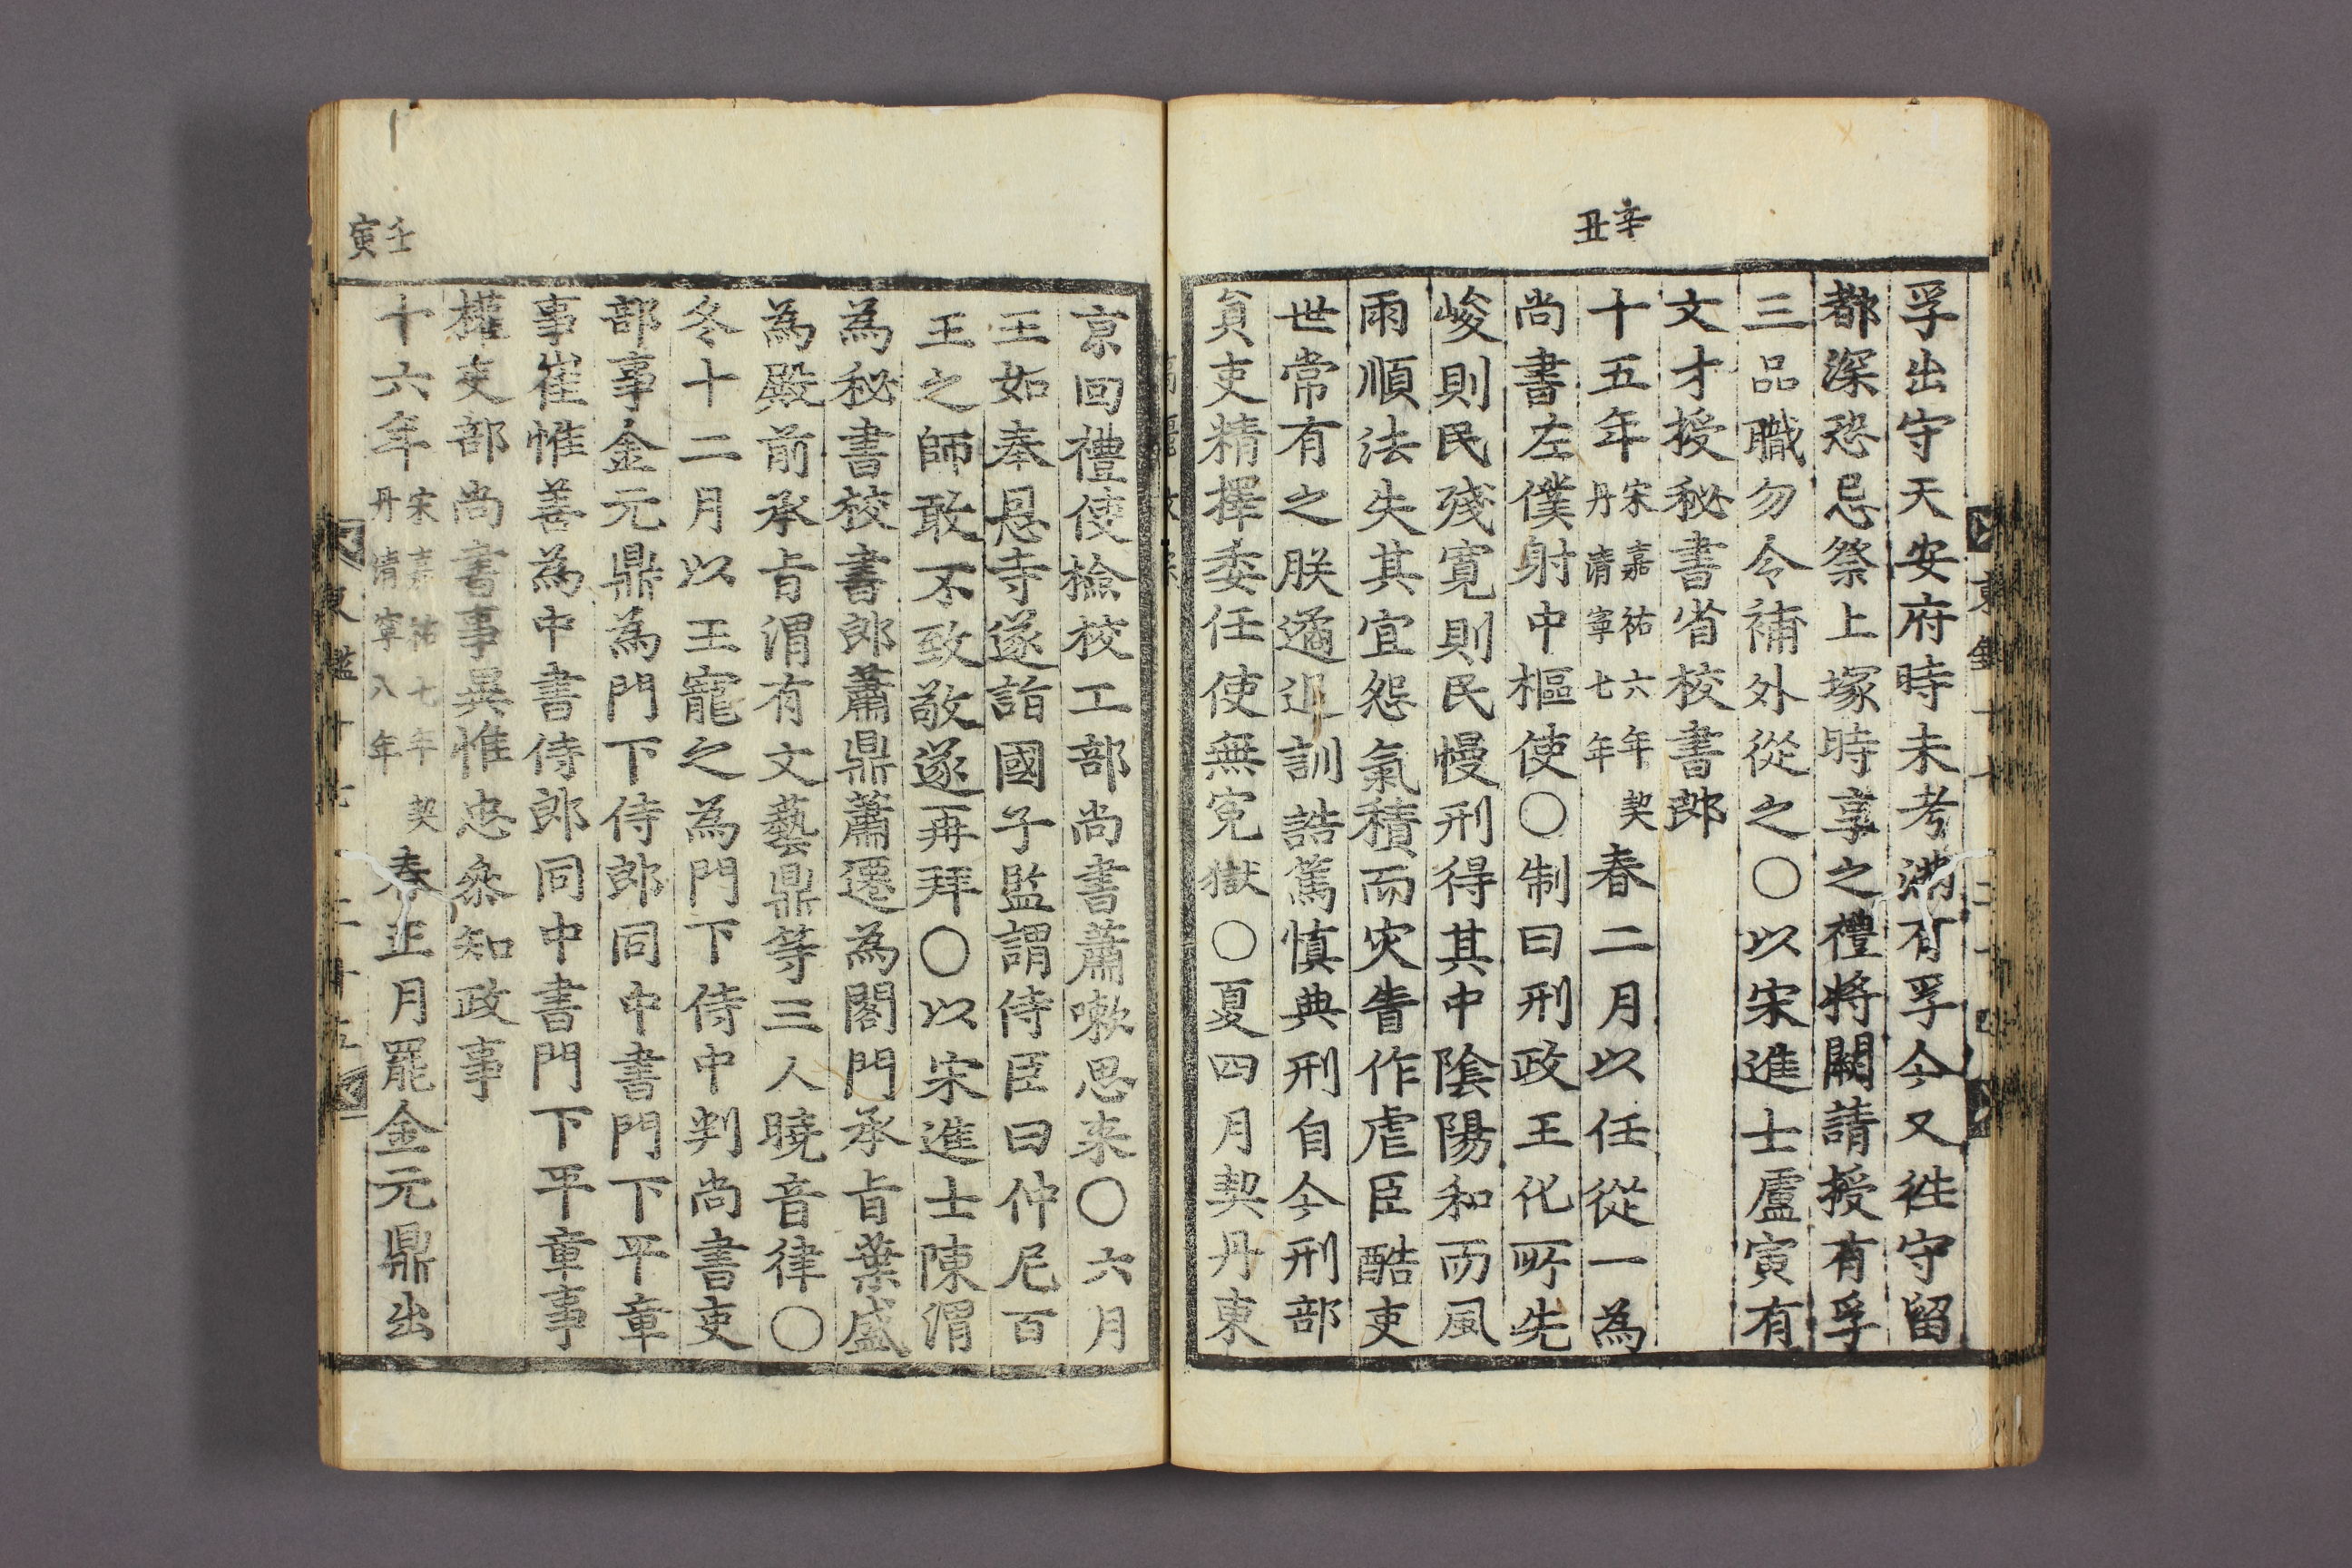 辛丑
孚出守天安府時未考滿有孚今又徃守留
都深恐忌祭上塚時享之禮將闕請授有孚
三品職勿令補外從之○以宋進士盧寅有
文才授秘書省校書郎
十五年宋嘉祐六年契丹清寧七年春二月以任從一為
尚書左僕射中樞使○制曰刑政王化所先
峻則民殘寬則民慢刑得其中陰陽和而風
雨順法失其宜怨氣積而灾眚作虐臣酷吏
世常有之朕遹追訓誥篤慎典刑自今刑部
員吏精擇委任使無冤獄○夏四月契丹東
京回禮使檢校工部尚書蕭嗽思来○六月
王如奉恩寺遂詣國子監謂侍臣曰仲尼百
王之師敢不致敬遂再拜○以宋進士陳渭
為秘書校書郎蕭鼎蕭遷為閤門承旨葉盛
為殿前承旨渭有文藝鼎等三人曉音律○
冬十二月以王寵之為門下侍中判尚書吏
部事金元鼎為門下侍郎同中書門下平章
事崔惟善為中書侍郎同中書門下平章事
權吏部尚書事異惟忠叅知政事
壬寅
十六年宋嘉祐七年契丹清寧八年春正月罷金元鼎出
東鑑十七 二十五